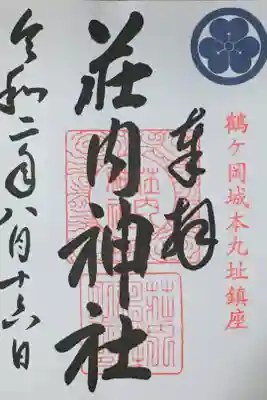 鶴ヶ岡城本丸址鎮座
奉拝
荘内神社
令和二年八月十六日